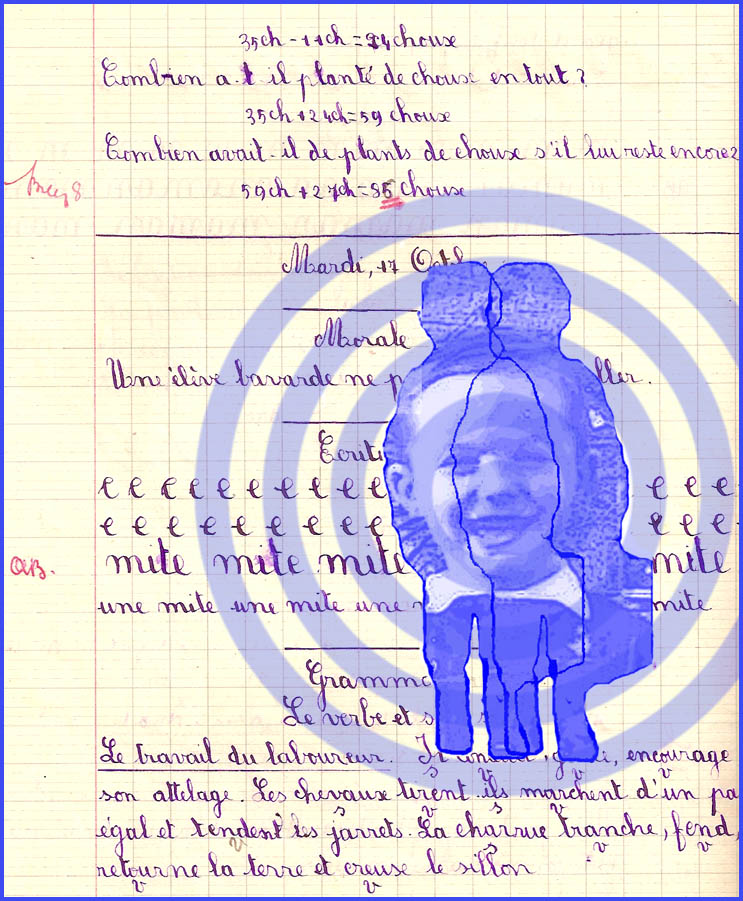 35ch - 11ch = 24 chouse
Combien a.t il planté de chouse en tout ?
35ch + 24ch = 59 chouse
Combien avait-il de plants de chouse s'il lui reste encore 2
59ch + 27ch = 86 chouse
Mardi, 17 Oct
Morale
Une élève bavarde ne p ller.
Ecrit
e e e e e e e e e e e e e
e e e e e e e e e e e e
mite mite mite mite
une mite une mite une mite
Gramm
Le verbe et s
Le travail du laboureur. encourage
s v v v
son attelage. Les chevaux tirent ils marchent d'un pa
s v s v
égal et tendent les jarrets. La charrue tranche, fend,
v s v v
retourne la terre et creuse le sillon
v v